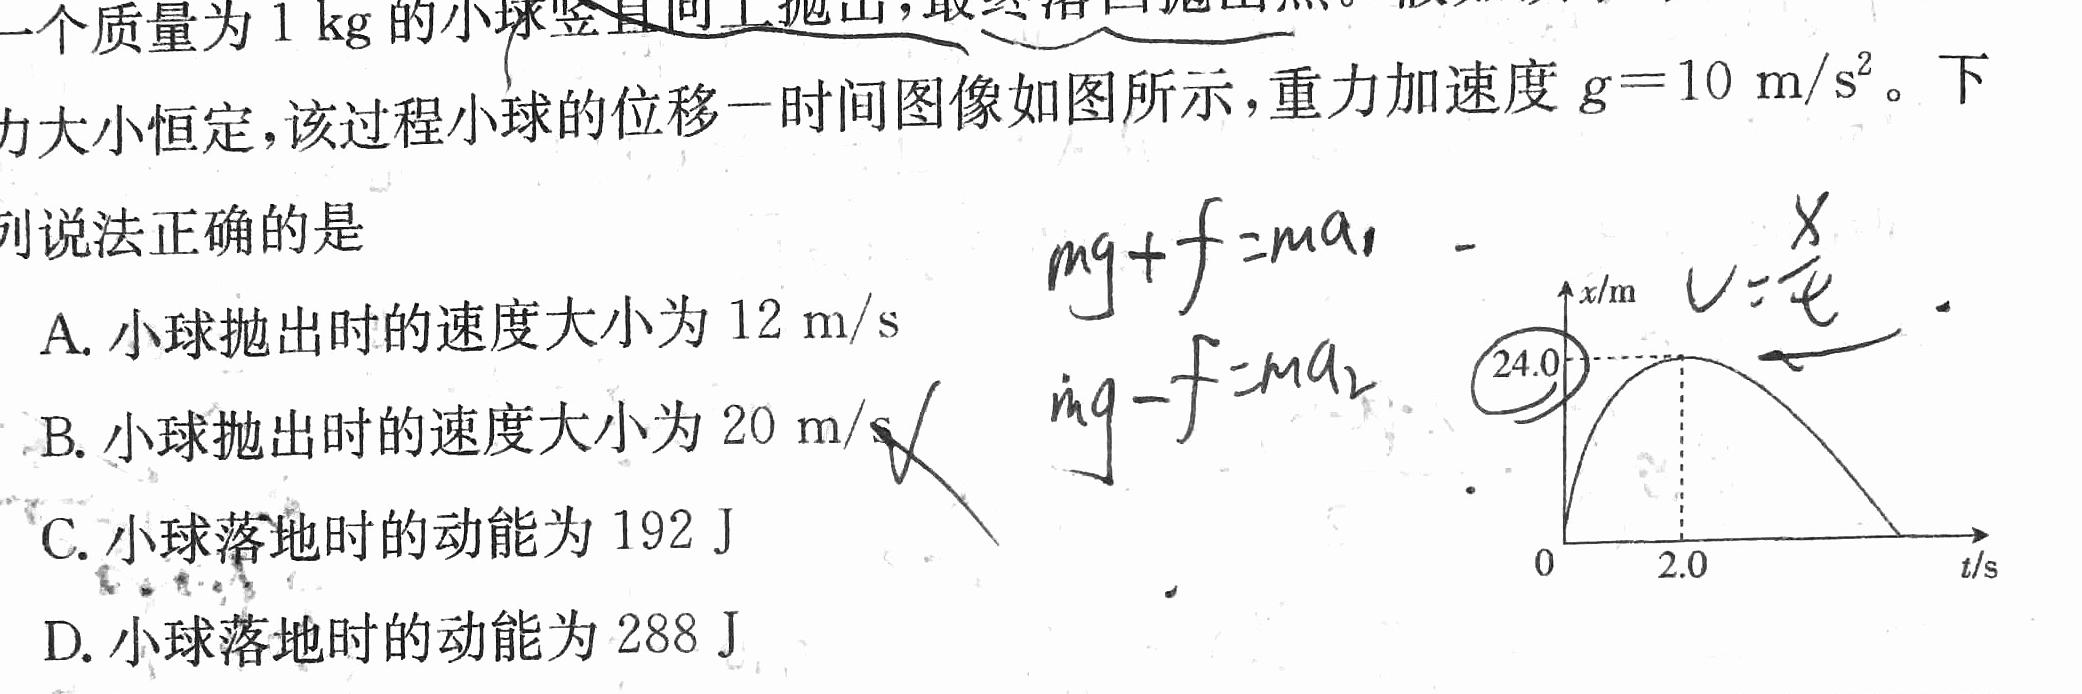 一个质量为 1 kg 的小球竖直向上抛出,最终落回抛出点。假
力大小恒定,该过程小球的位移一时间图像如图所示,重力加速度 g=10 m/s²。下
列说法正确的是
A. 小球抛出时的速度大小为 12 m/s
B. 小球抛出时的速度大小为 20 m/s
C. 小球落地时的动能为 192 J
D. 小球落地时的动能为 288 J
mg+f=ma₁
mg-f=ma₂
v=x/t
x/m
24.0
0
2.0
t/s